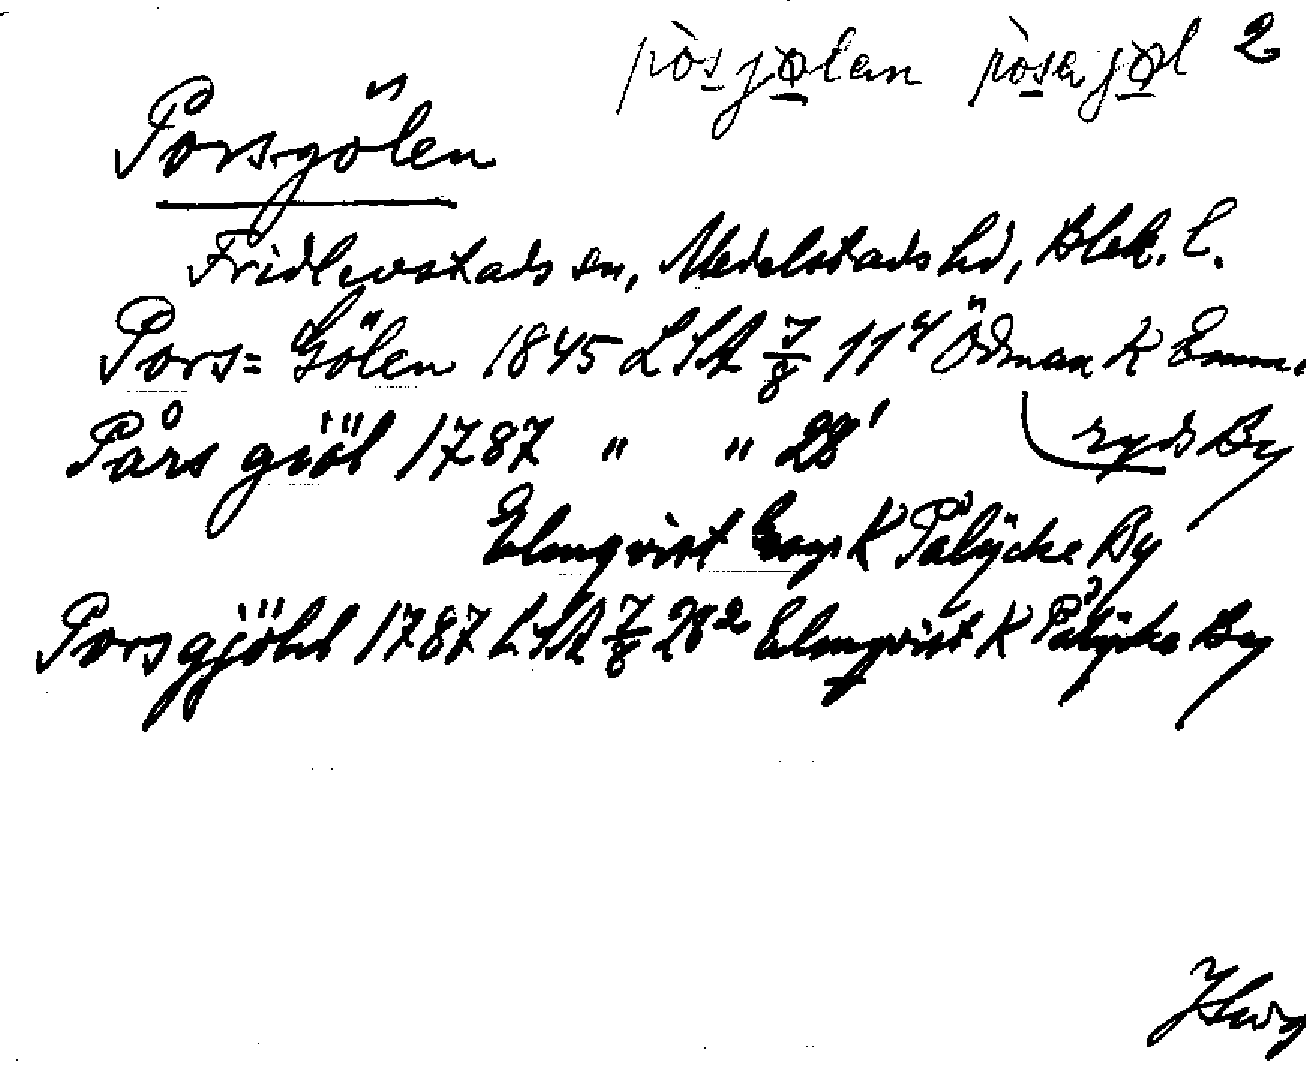 pòsjølan pòsagøl 2
Porsgölen
Fridlevstads sn, Medelstads hd, Blek. l.
Pors= Gölen 1845 LSA 7/8 11⁴ Ödman K Emma-
Pårs giöl 1787 " " 28¹ ryds By
Elmqvist K Pålycke By
Porsgjöhl 1787 LSA 7/8 28² Elmqvist K Pålycke By